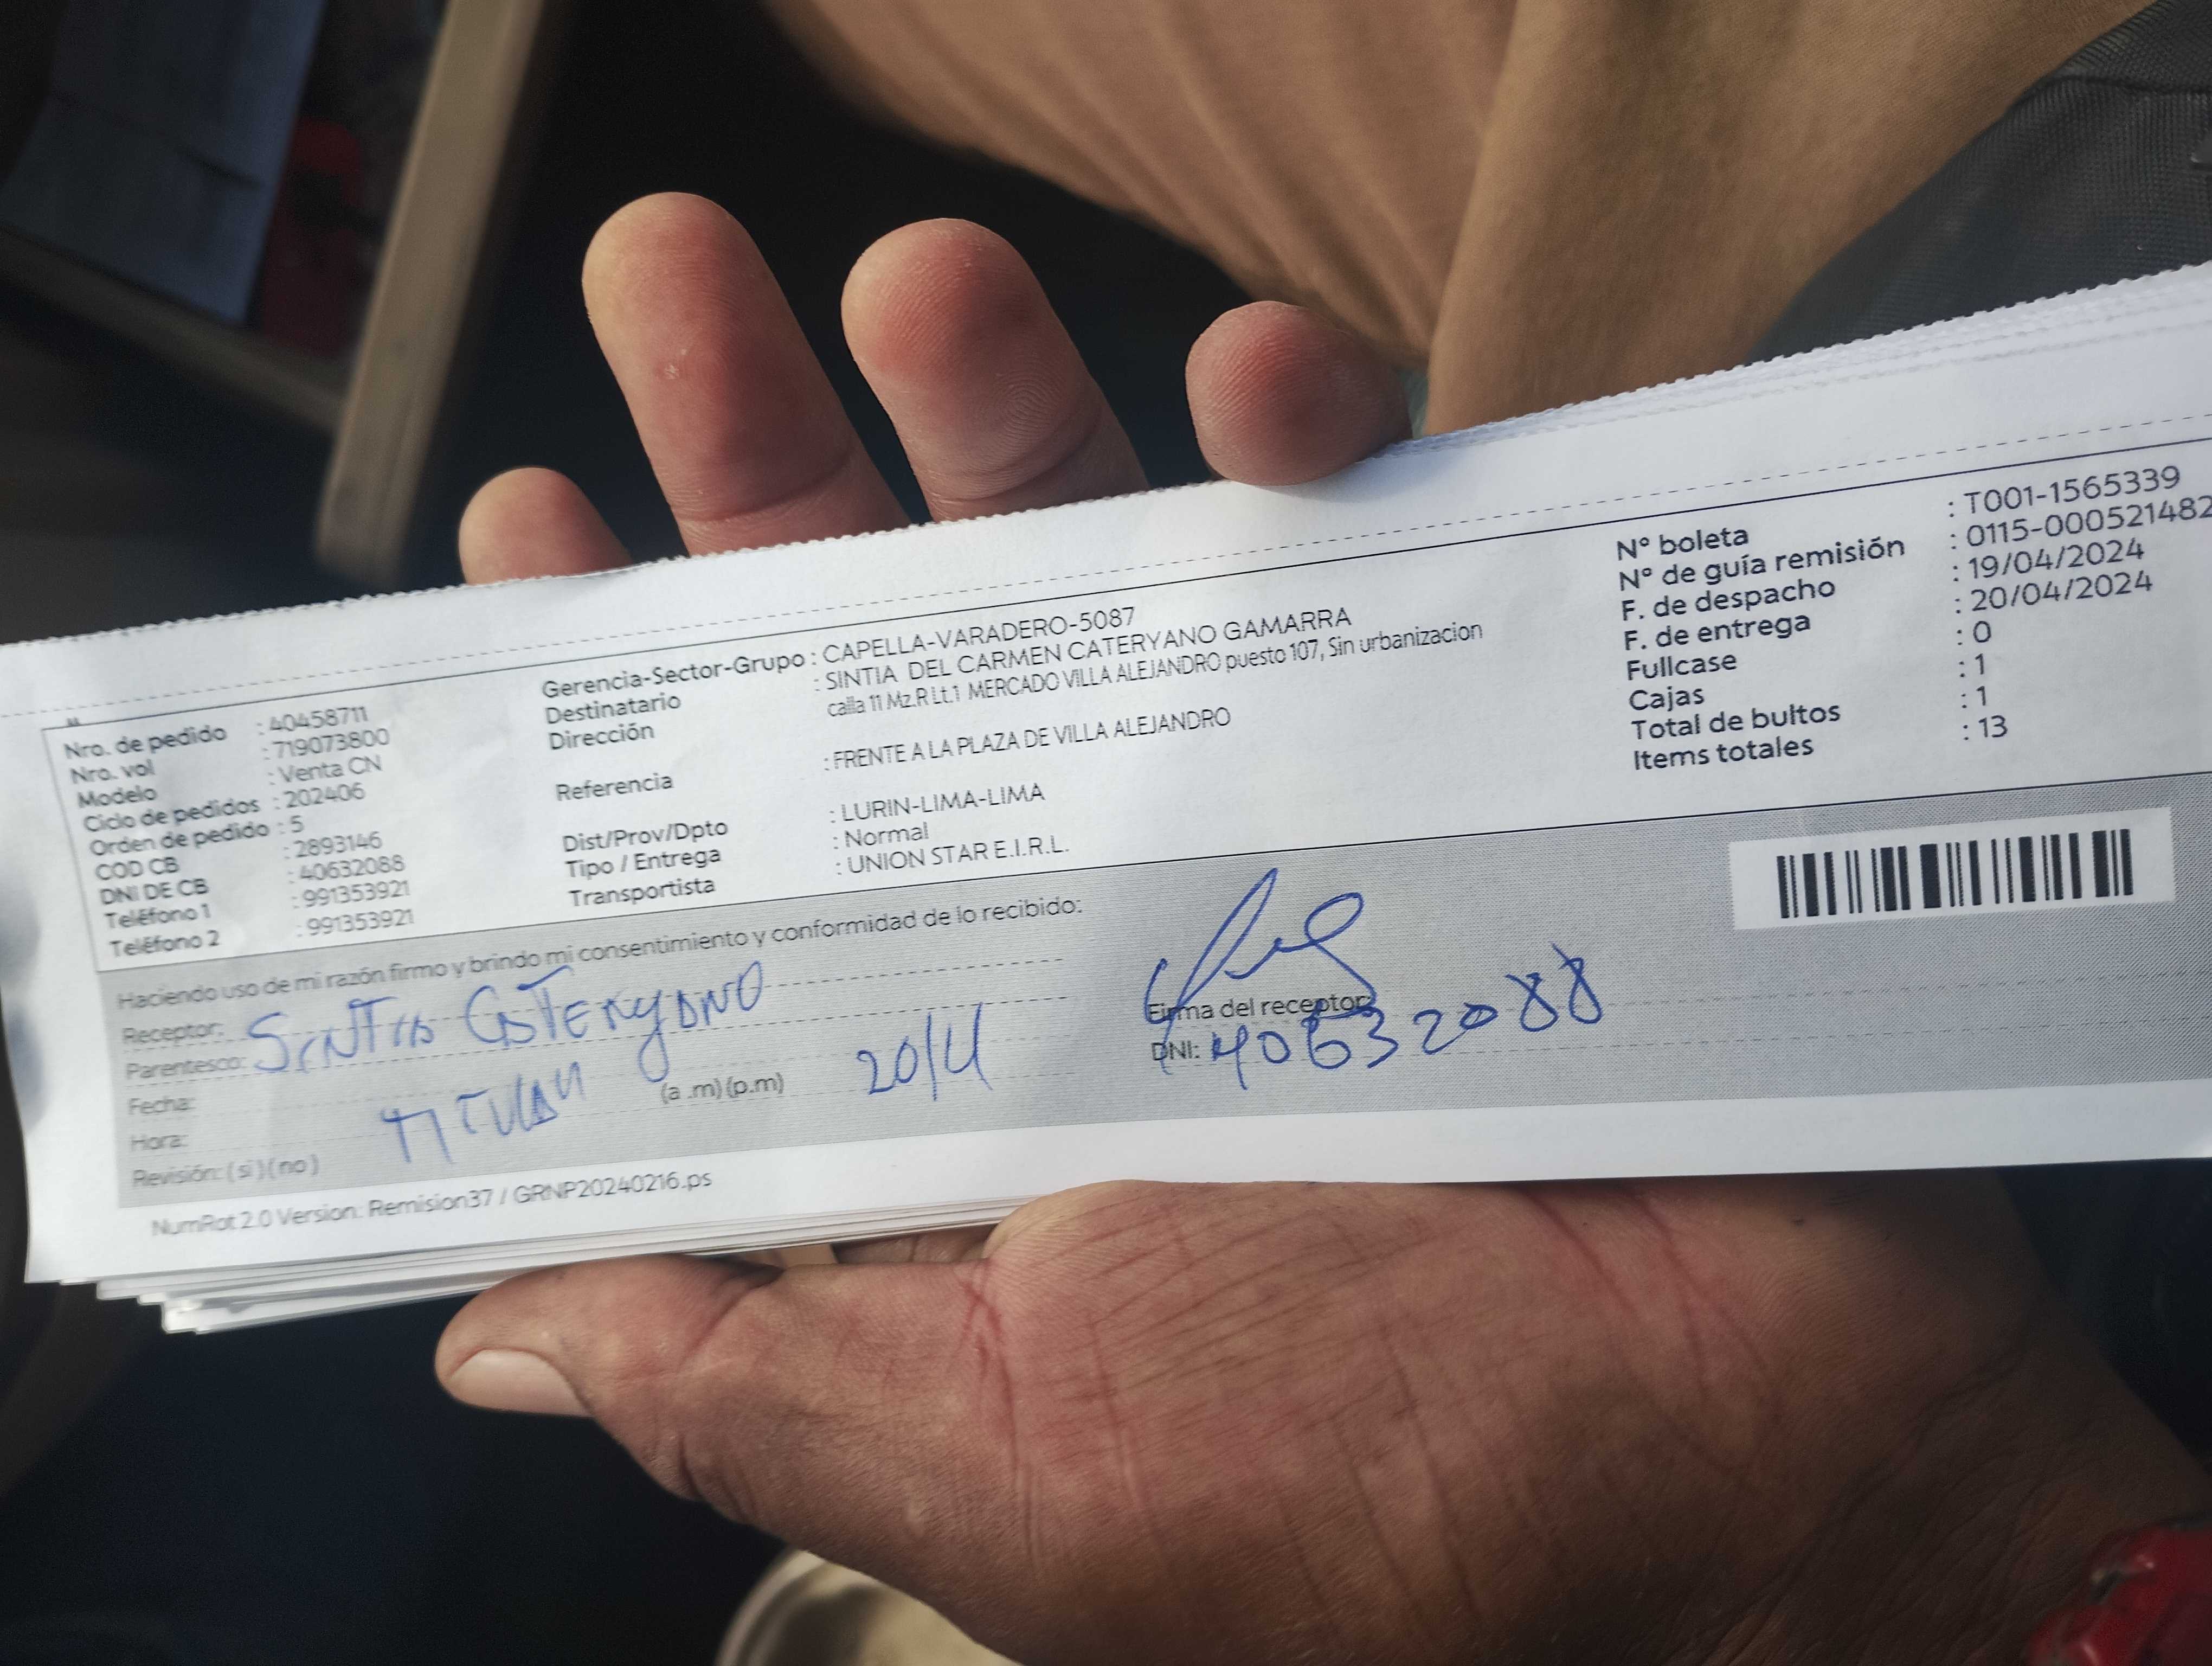 Nro. de pedido : 40458711
Nro. vol : 719073800
Modelo : Venta CN
Ciclo de pedidos : 202406
Orden de pedido : 5
COD CB : 2893146
DNI DE CB : 40632088
Teléfono 1 : 991353921
Teléfono 2 : 991353921
Gerencia-Sector-Grupo : CAPELLA-VARADERO-5087
Destinatario : SINTIA DEL CARMEN CATERYANO GAMARRA
Dirección calla 11 Mz.R Lt.1 MERCADO VILLA ALEJANDRO puesto 107, Sin urbanizacion
Referencia : FRENTE A LA PLAZA DE VILLA ALEJANDRO
Dist/Prov/Dpto : LURIN-LIMA-LIMA
Tipo / Entrega : Normal
Transportista : UNION STAR E.I.R.L.
N° boleta : T001-1565339
N° de guía remisión : 0115-000521482
F. de despacho : 19/04/2024
F. de entrega : 20/04/2024
Fullcase : 0
Cajas : 1
Total de bultos : 1
Items totales : 13
Haciendo uso de mi razón firmo y brindo mi consentimiento y conformidad de lo recibido:
Receptor: Sintia Cateryano
Parentesco: Titular
Fecha: 20/4
Hora: (a .m) (p.m)
Revisión: ( si ) ( no )
Firma del receptor:
DNI: 40632088
NumRot 2.0 Version: Remision37 / GRNP20240216.ps